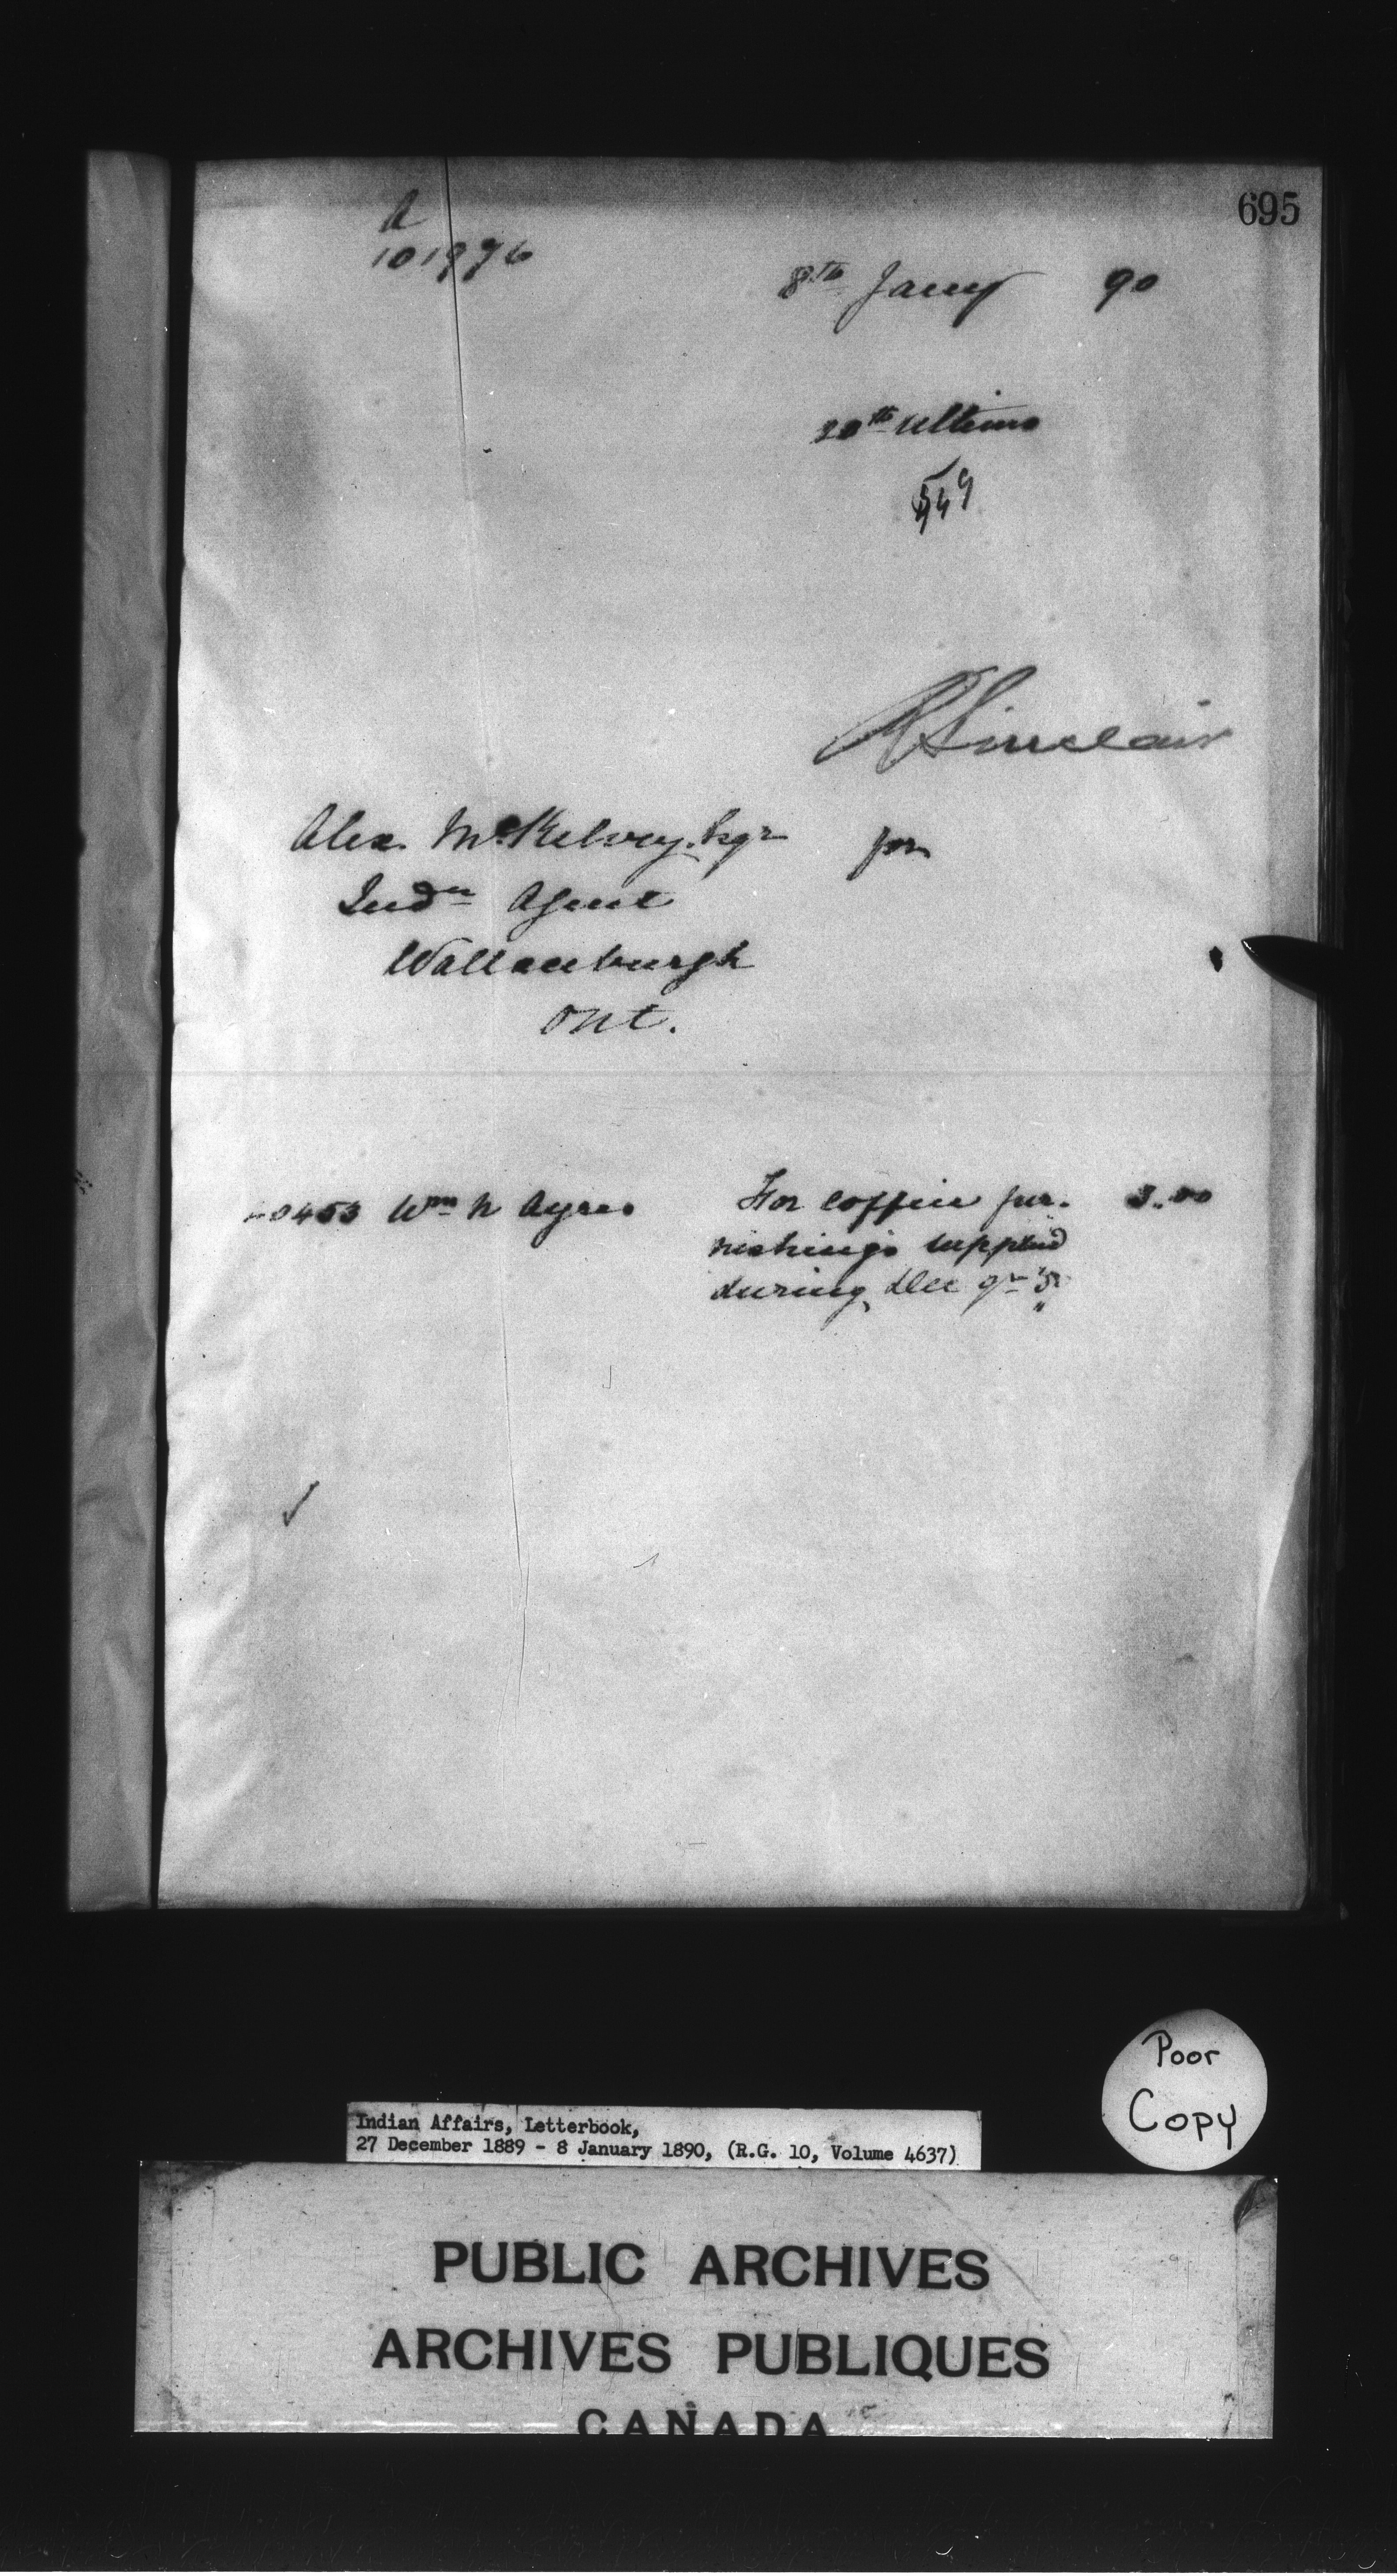 695
A
101976
8th Jany 90
20th Ultimo
549
R Sinclair
Alex. McKelvey. Esqr
for
Indn Agent
Wallaceburgh
Ont.
0453 Wm N Ayres For coffin fur- 3.00
nishings supplied
during Dec qr
Poor
Copy
Indian Affairs, Letterbook,
27 December 1889 - 8 January 1890, (R.G. 10, Volume 4637)
PUBLIC ARCHIVES
ARCHIVES PUBLIQUES
CANADA